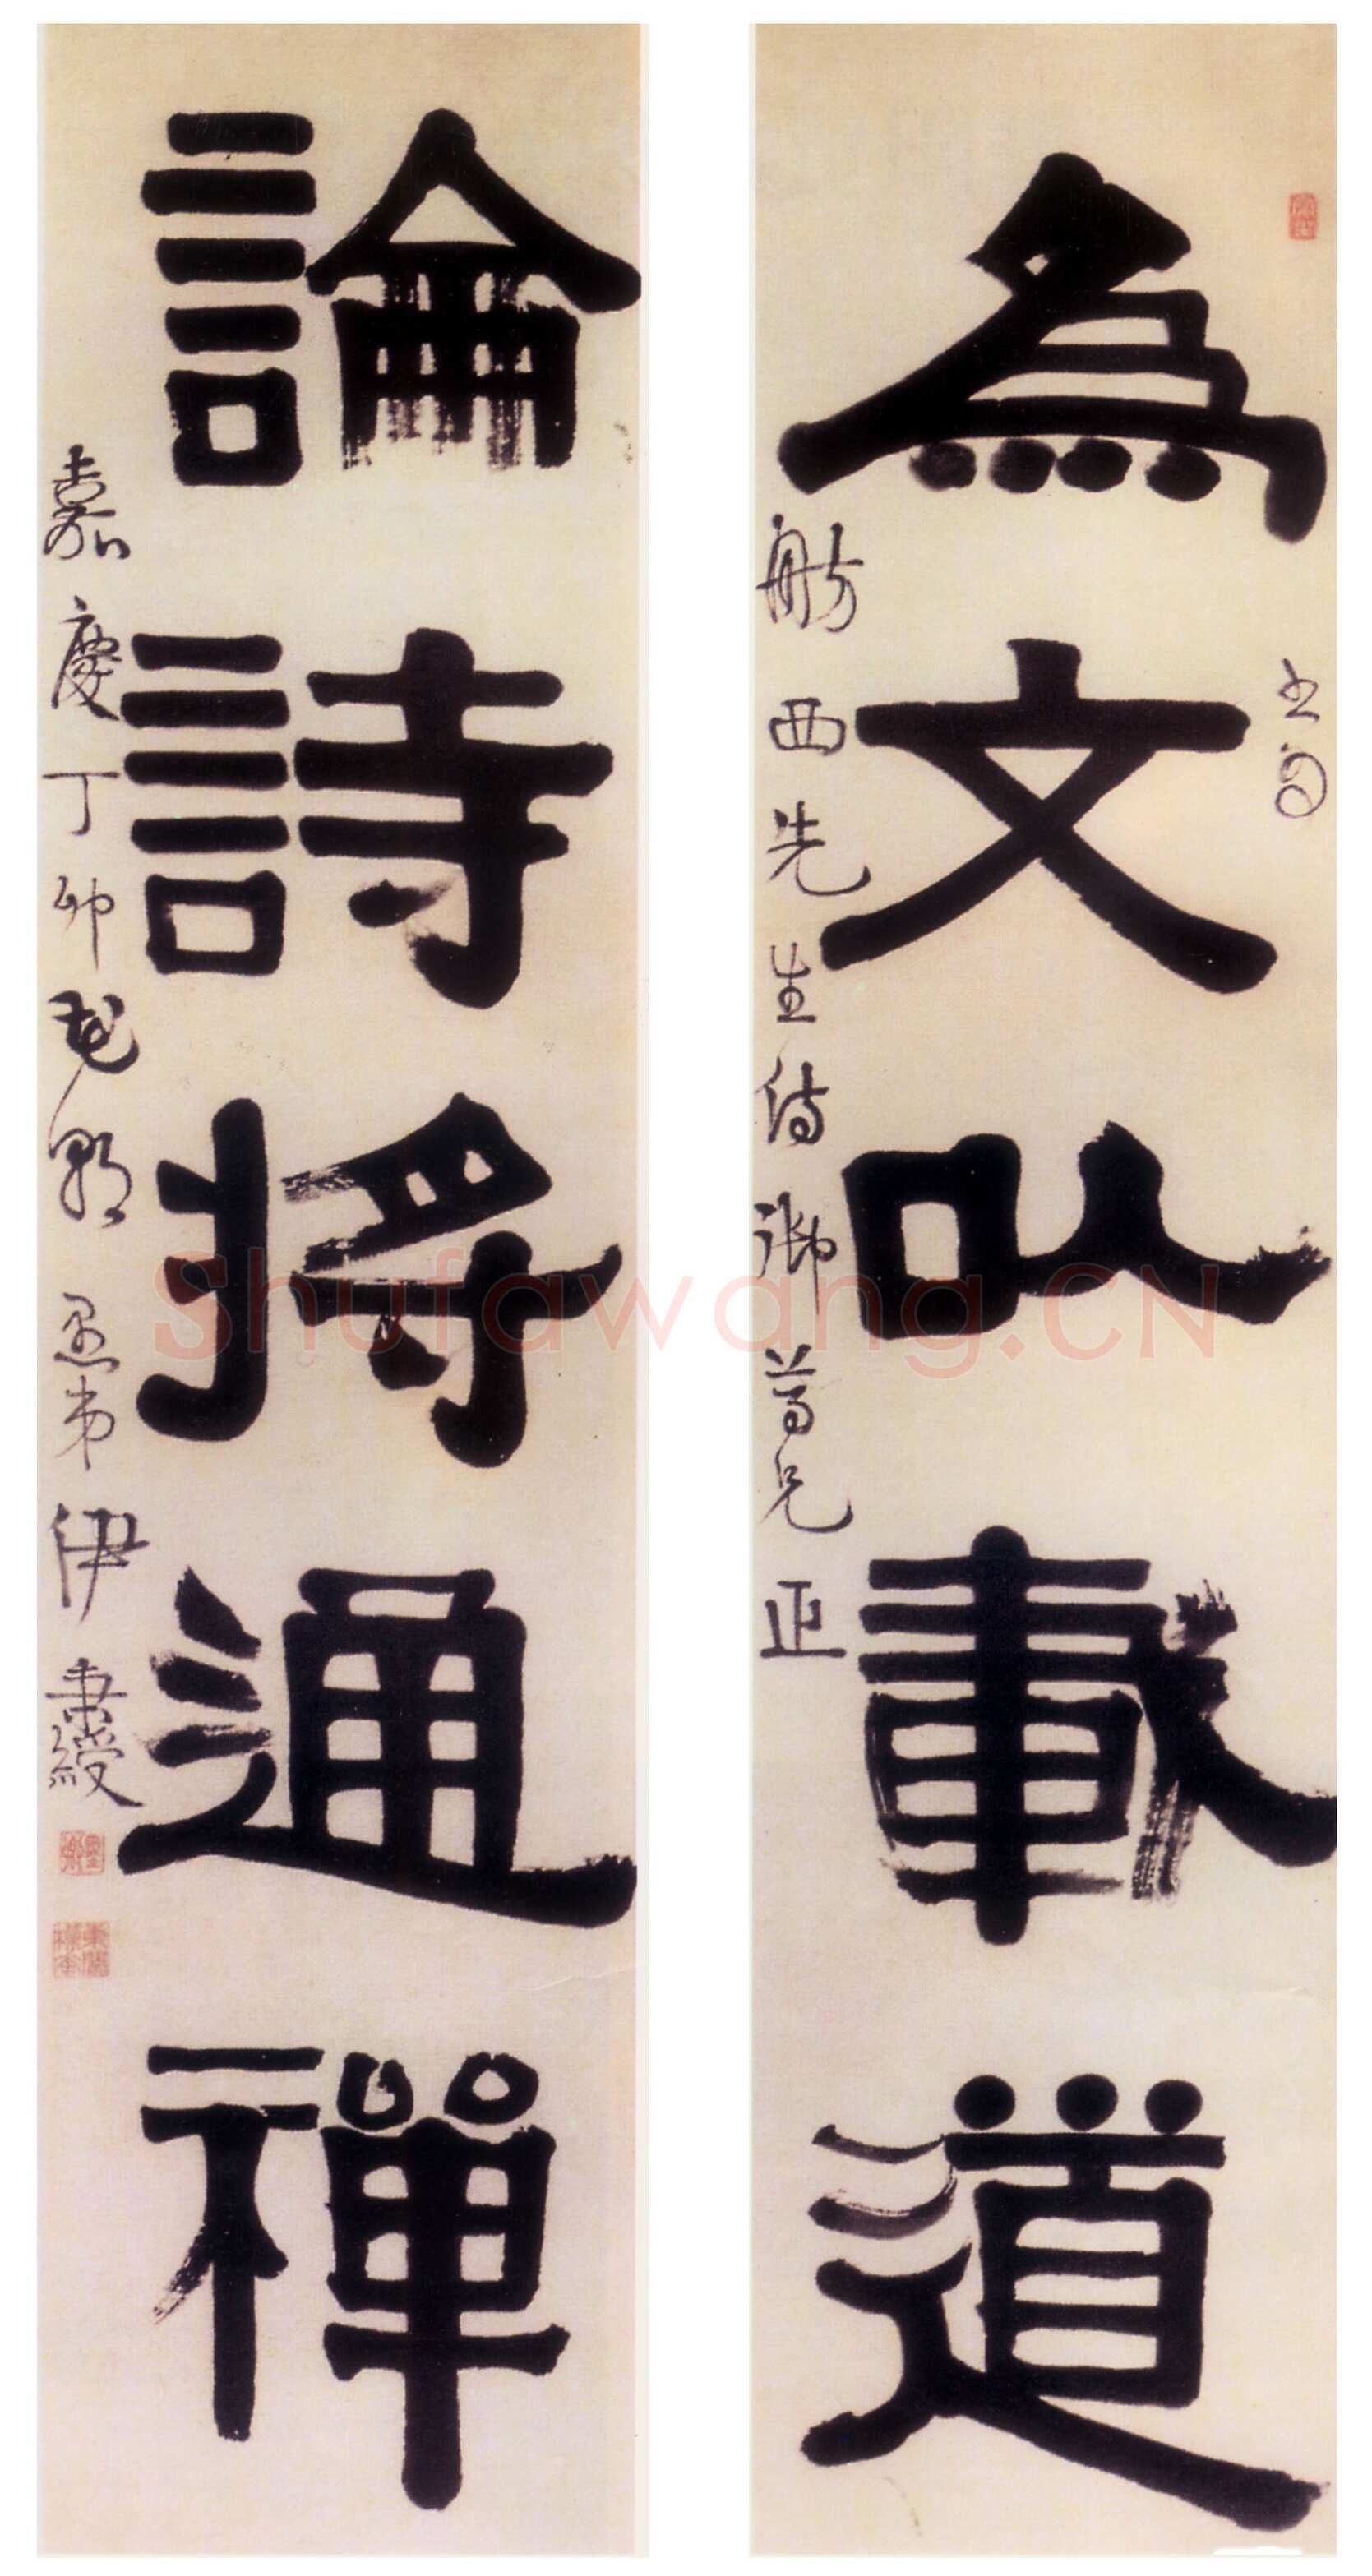 為文以載道
舫西先生侍御尊兄正
論詩將通禪
嘉慶丁卯花朝愚弟伊秉綬
Shufawang.CN